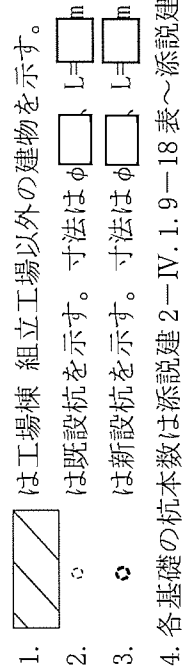 1. は工場棟 組立工場以外の建物を示す。
2. は既設杭を示す。 寸法はφ 、 L= m
3. は新設杭を示す。 寸法はφ 、 L= m
4. 各基礎の杭本数は添説建2-Ⅳ.1.9-18表～添説建